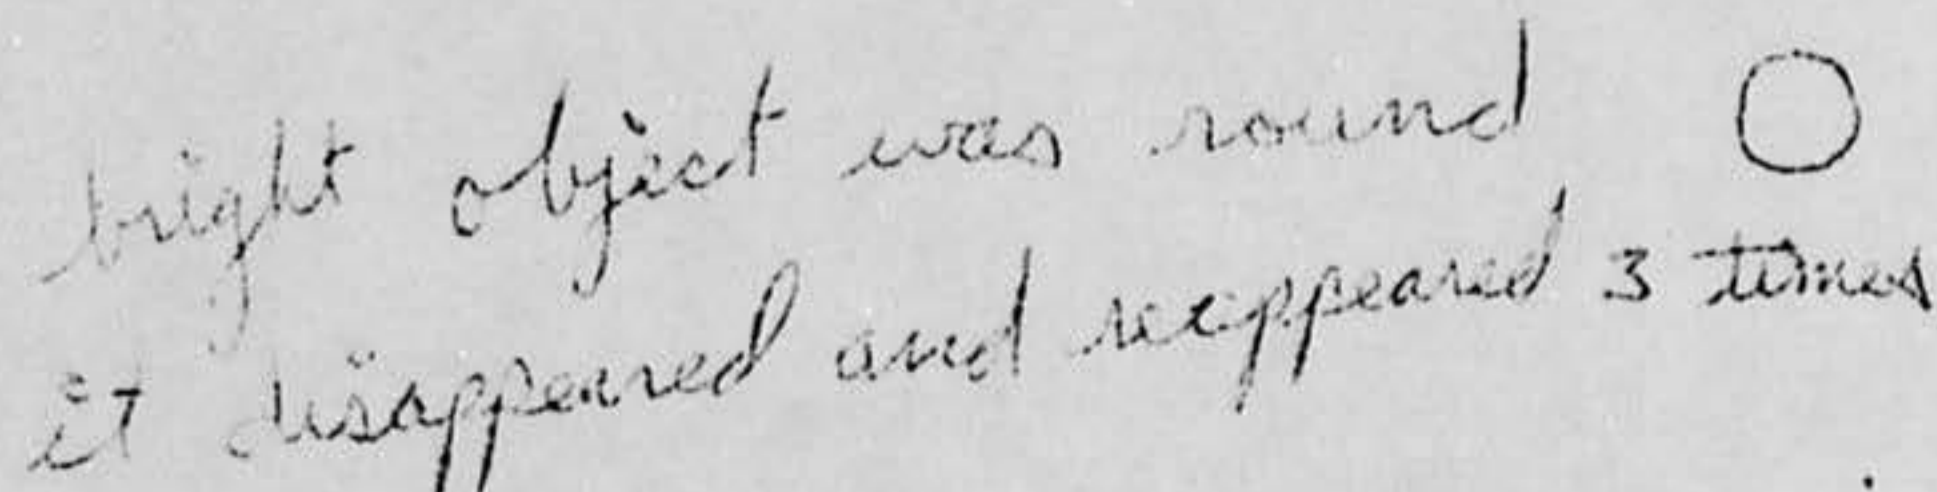 bright object was round
it disappeared and reappeared 3 times